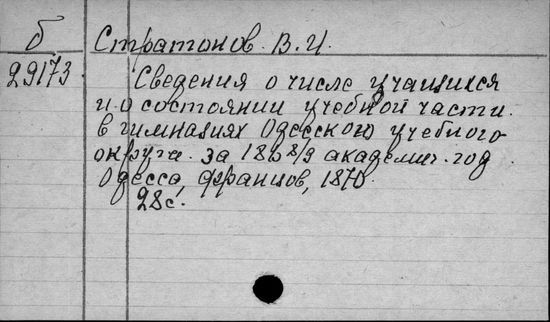 б Стратонов В. И.
29173 Сведения о числе учащихся
и о состоянии учебной части
в гимназиях Одесского учебного
округа за 1868/9 академич. год.
Одесса, Францов, 1870.
28с.